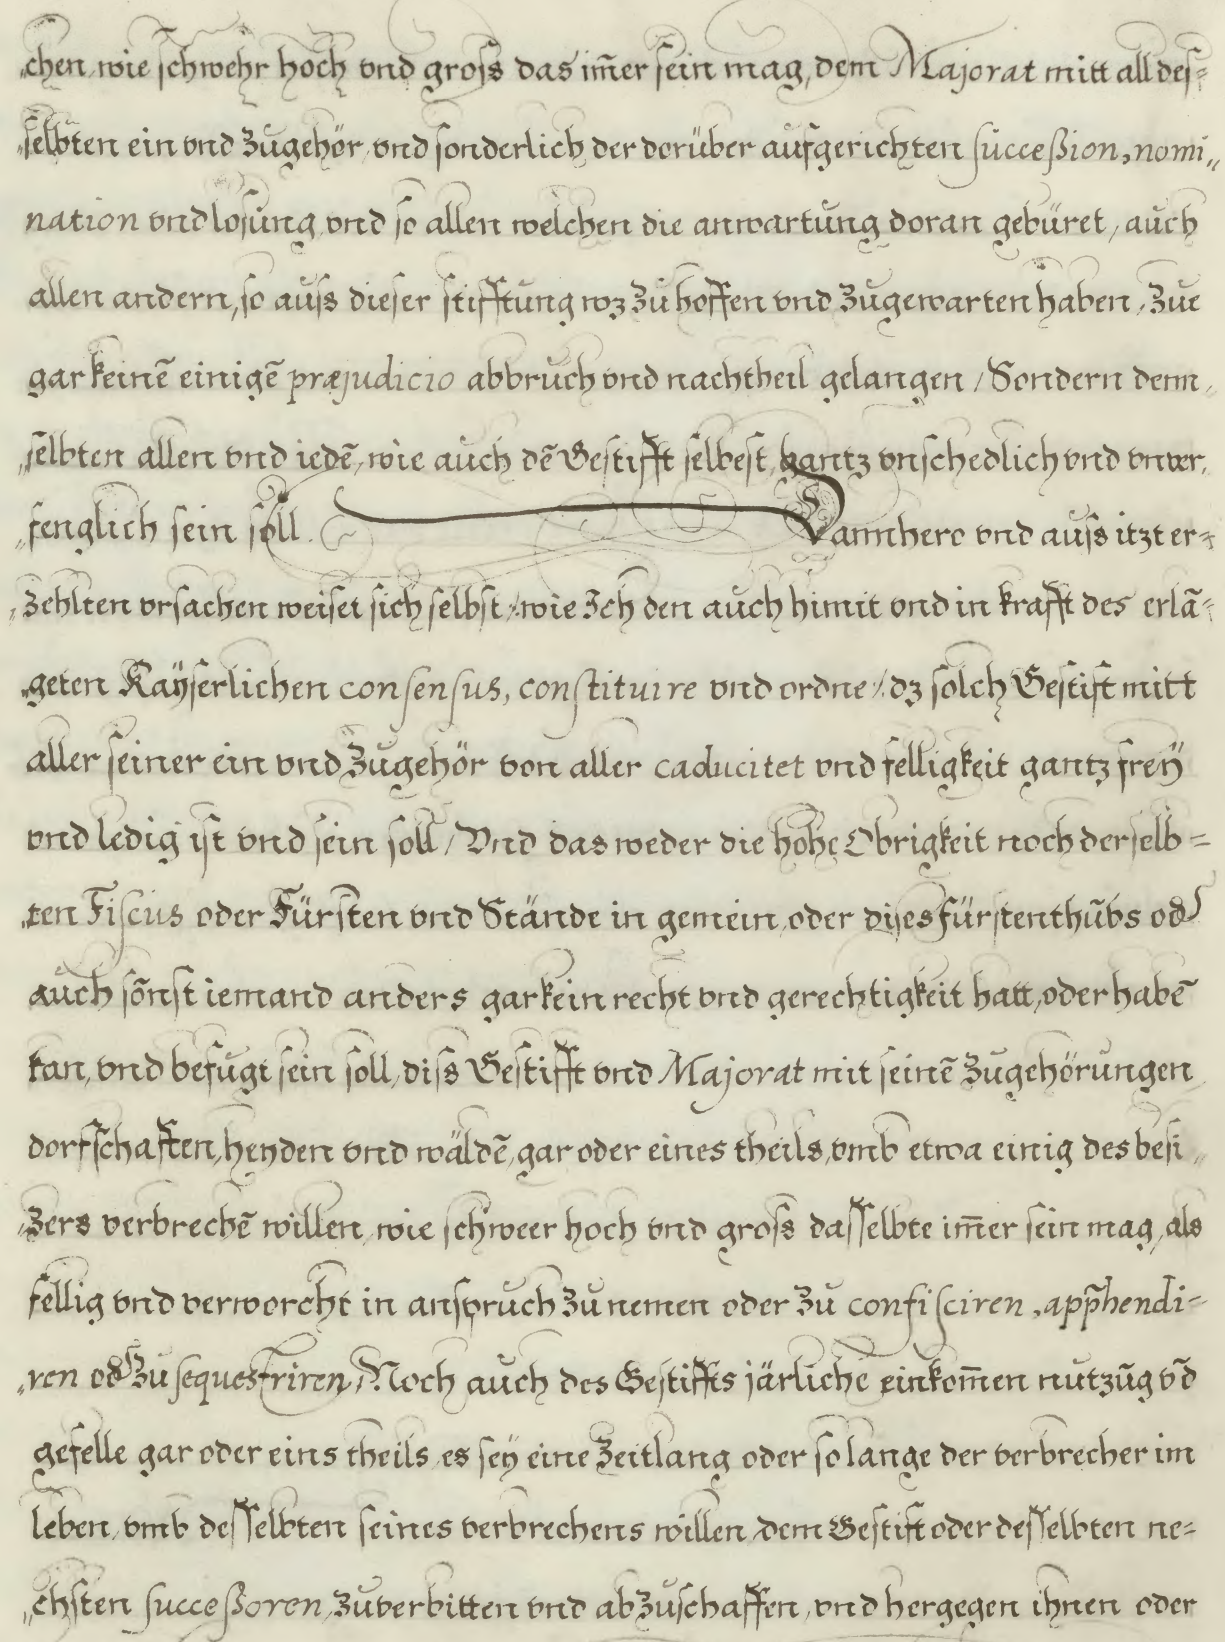 „chen, wie schwehr hoch vnd gross das im̄er sein mag, dem Majorat mitt all des=
„selbten ein vnd Zugehör, vnd sonderlich der dorüber aufgerichten succeßion, nomi„
nation vnd losung, vnd so allen welchen die anwartung doran gebüret, auch
allen andern, so auss dieser stifftung wz zu hoffen vnd Zugewarten haben, Zue
gar keinē einigē præjudicio abbruch vnd nachtheil gelangen / Sondern denn„
„selbten allen vnd iedē, wie auch dē Gestifft selbest, gantz vnschedlich vnd vnver„
„fenglich sein soll. Dannhero vnd auss itzt er=
„Zehlten vrsachen weiset sich selbst /: wie Ich den auch himit vnd in krafft des erlā=
„geten Kaÿserlichen consensus, constituire vnd ordne :/ dz solch Gestift mitt
aller seiner ein vnd Zugehör von aller caducitet vnd felligkeit gantz freÿ
vnd ledig ist vnd sein soll / Vnd das weder die hohe Obrigkeit noch derselb=
„ten Fiscus oder Fürsten vnd Stände in gemein, oder dises fürstenthūbs od
auch sōnst iemand anders gar kein recht vnd gerechtigkeit hatt, oder habē
kan, vnd befugt sein soll, diss Gestifft vnd Majorat mit seinē Zugehörungen
dorfschafften, heyden vnd wäldē, gar oder eines theils, vmb etwa einig des besi„
„Zers verbrechē willen, wie schweer hoch vnd gross dasselbte im̄er sein mag, als
fellig vnd verworcht in anspruch Zu nemen oder Zu confisciren, app̄hendi=
„ren od Zu sequestriren, Noch auch des Gestiffts järliche einkom̄en nutzūg vn̄d
gefelle gar oder eins theils, es seÿ eine Zeitlang oder so lange der verbrecher im
leben, vmb desselbten seines verbrechens willen, dem Gestift oder desselbten ne=
„chsten succeßoren, Zuverbitten vnd abZuschaffen, vnd hergegen ihnen oder